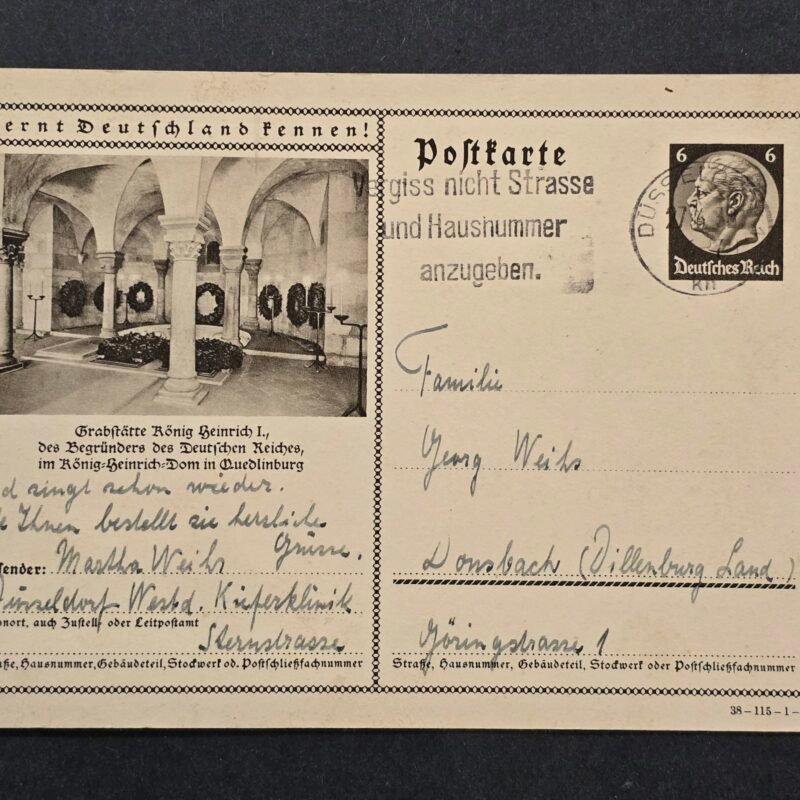 ernt Deutschland kennen!
Grabstätte König Heinrich I.,
des Begründers des Deutschen Reiches,
im König-Heinrich-Dom in Quedlinburg
singt schon wieder.
Ihnen bestellt sie herzliche
Grüsse.
ender: Martha Weihs
Düsseldorf Westd. Kieferklinik
nort, auch Zustell- oder Leitpostamt
Sternstrasse
ße, Hausnummer, Gebäudeteil, Stockwerk od. Postschließfachnummer
Postkarte
Vergiss nicht Strasse
und Hausnummer
anzugeben.
6 6
Deutsches Reich
Familie
Georg Weihs
Donsbach (Dillenburg Land)
Göringstrasse 1
Straße, Hausnummer, Gebäudeteil, Stockwerk oder Postschließfachnummer
38-115-1-